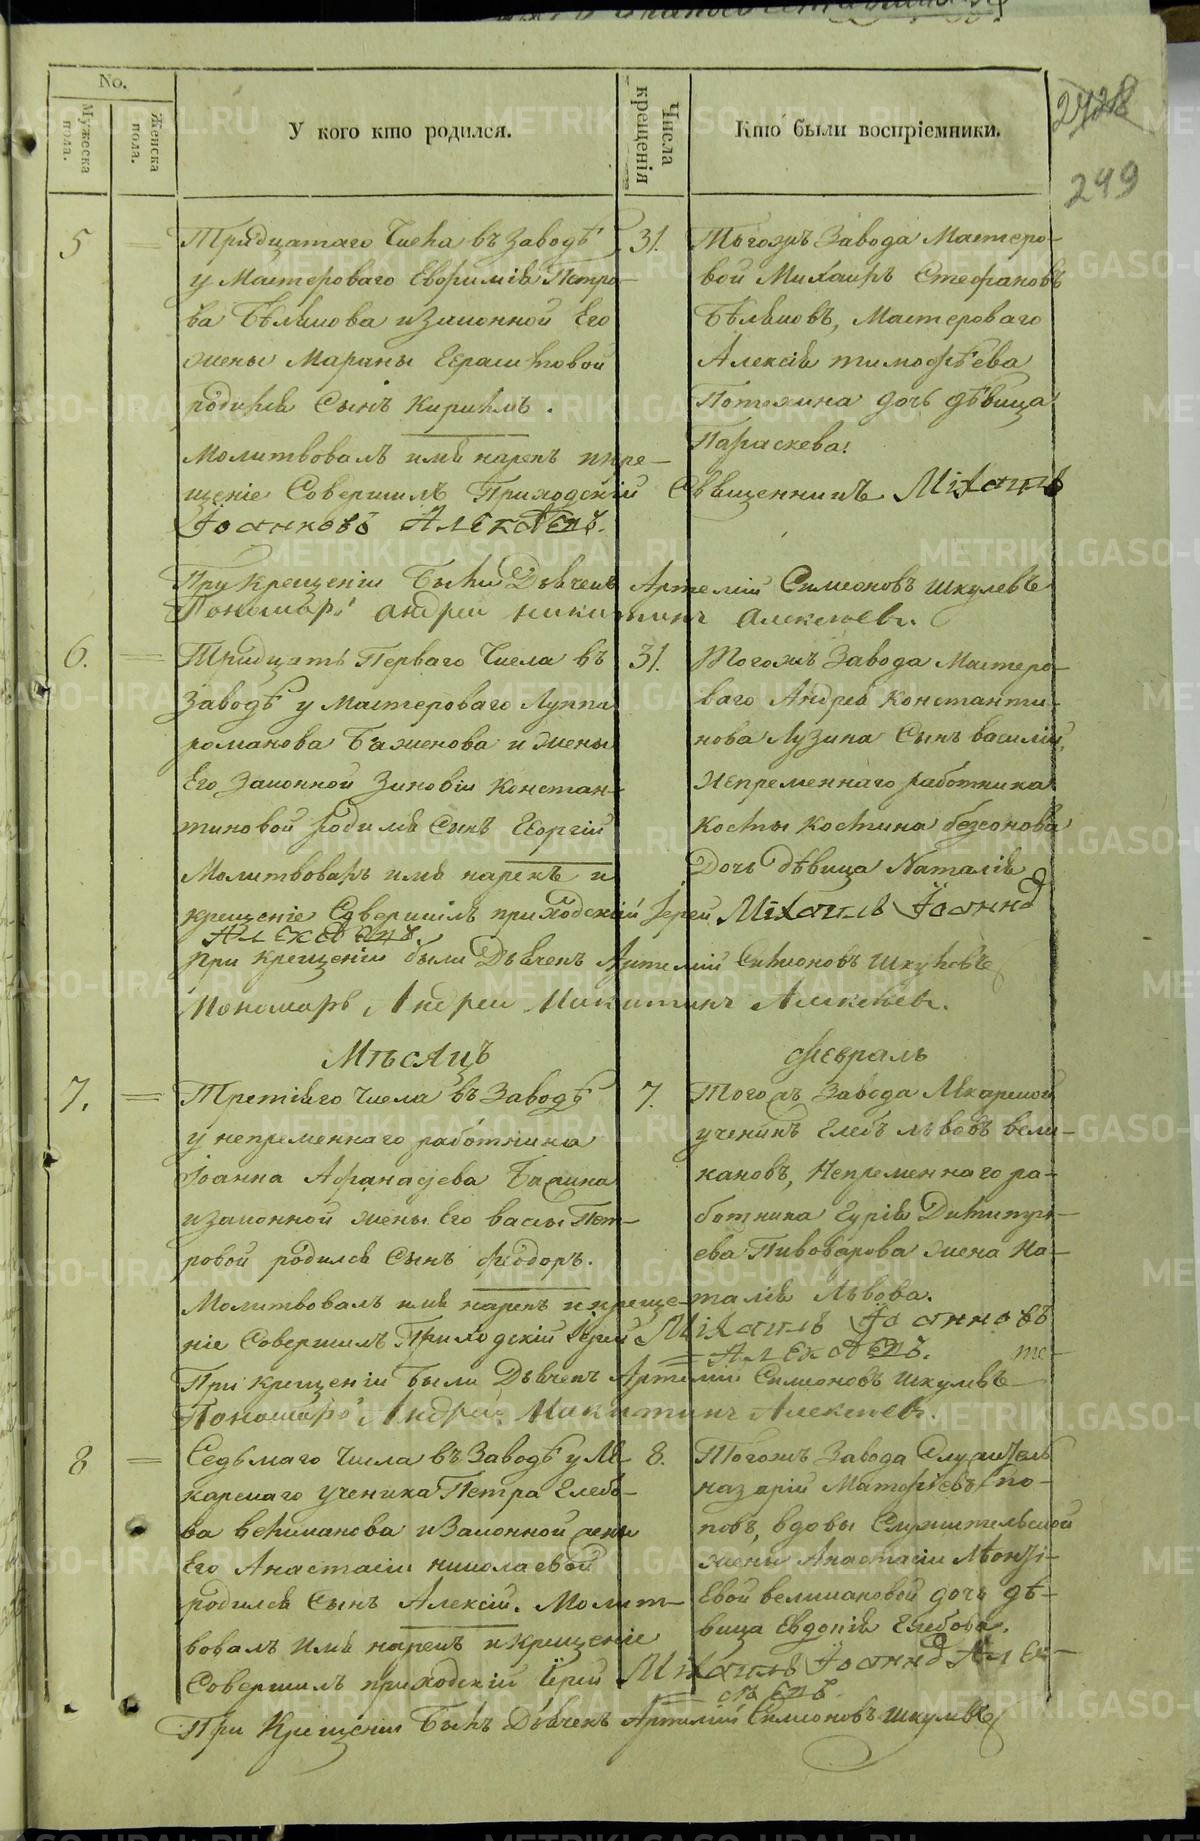 No.
Мужеска пола.
Женска пола.
У кого кто родился.
Числа крещенія
Кто были воспріемники.
249
5 Тридцатаго Числа въ Заводѣ
у Мастероваго Евфимія Петро-
ва Бѣлышова и Законной Его
жены Марины Герасимовой
родился Сынъ Кирилъ.
Молитвовалъ имя нарекъ и кре-
щеніе Совершилъ Приходскій Священникъ Михаилъ
Іоанновъ
При Крещеніи были Дьячекъ Артемій Симеоновъ Шкулевъ
Пономарь Андрей Никитинъ Алексѣевъ.
31. Тогожъ Завода Мастеро-
вой Михаилъ Стефановъ
Бѣлышовъ, Мастероваго
Алексія тимофѣева
дочь дѣвица
Параскева.
6. Тридцать Перваго Числа въ
Заводѣ у Мастероваго Луппа
романова Баженова и жены
Его Законной Зиновіи Констан-
тиновой родился Сынъ Георгій
Молитвовалъ имя нарекъ и
крещеніе Совершилъ приходскій Іерей Михаилъ Іоанновъ
при крещеніи были Дьячекъ Артемій Симіоновъ Шкулевъ
Пономарь Андрей Никитинъ Алексѣевъ.
31. Тогожъ Завода Мастеро-
ваго Андрея Константи-
нова Лузина Сынъ василій,
Непременнаго работника
Косты Костина безсонова
Дочь дѣвица Наталія
Мѣсяцъ Февраль
7. Третіяго Числа въ Заводѣ
у непременнаго работника
Іоанна Афанасьева
и законной жены Его васы Пет-
ровой родился Сынъ Феодоръ.
Молитвовалъ имя нарекъ и креще-
ніе Совершилъ Приходскій Іерей Михаилъ Іоанновъ
При крещеніи Были Дьячекъ Артемій Симеоновъ Шкулевъ
Пономарь Андрей Никитинъ Алексѣевъ.
7. Того жъ Завода Лѣкарской
ученикъ Глебъ львовъ вели-
кановъ, Непременнаго ра-
ботника Гурія Димитрі-
ева Пивоварова жена На-
талія Львова.
8 Седьмаго Числа въ Заводѣ у Лѣ-
карскаго ученика Петра Глебо-
ва великанова и Законной жены
Его Анастасіи николаевой
родился Сынъ Алексій. Молит-
вовалъ Имя нарекъ и крещеніе
Совершилъ приходскій Іерей Михаилъ Іоанновъ
При Крещеніи Былъ Дьячекъ Артемій Симионовъ Шкулевъ
8. Тогожъ Завода Служитель
назарій Матфіевъ по-
повъ, вдовы Служительской
жены Анастасіи Леонті-
евой великановой дочь дѣ-
вица Евдокія Глебова.